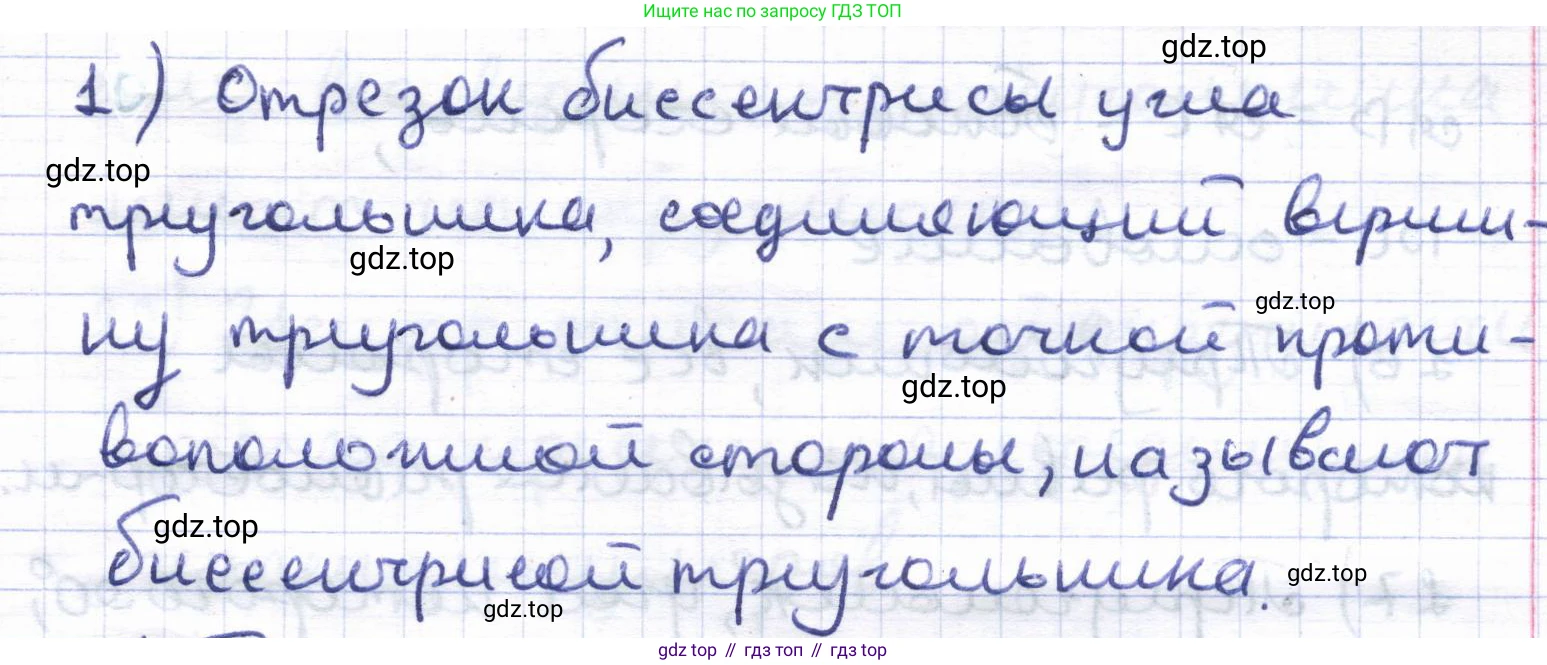 Ищите нас по запросу ГДЗ ТОП
gdz.top
1) Отрезок биссектрисы угла
gdz.top
треугольника, соединяющий верши-
gdz.top
gdz.top
ну треугольника с точкой проти-
gdz.top
воположной стороны, называют
gdz.top
биссектрисой треугольника.
gdz.top
gdz.top
gdz top // гдз топ // гдз top